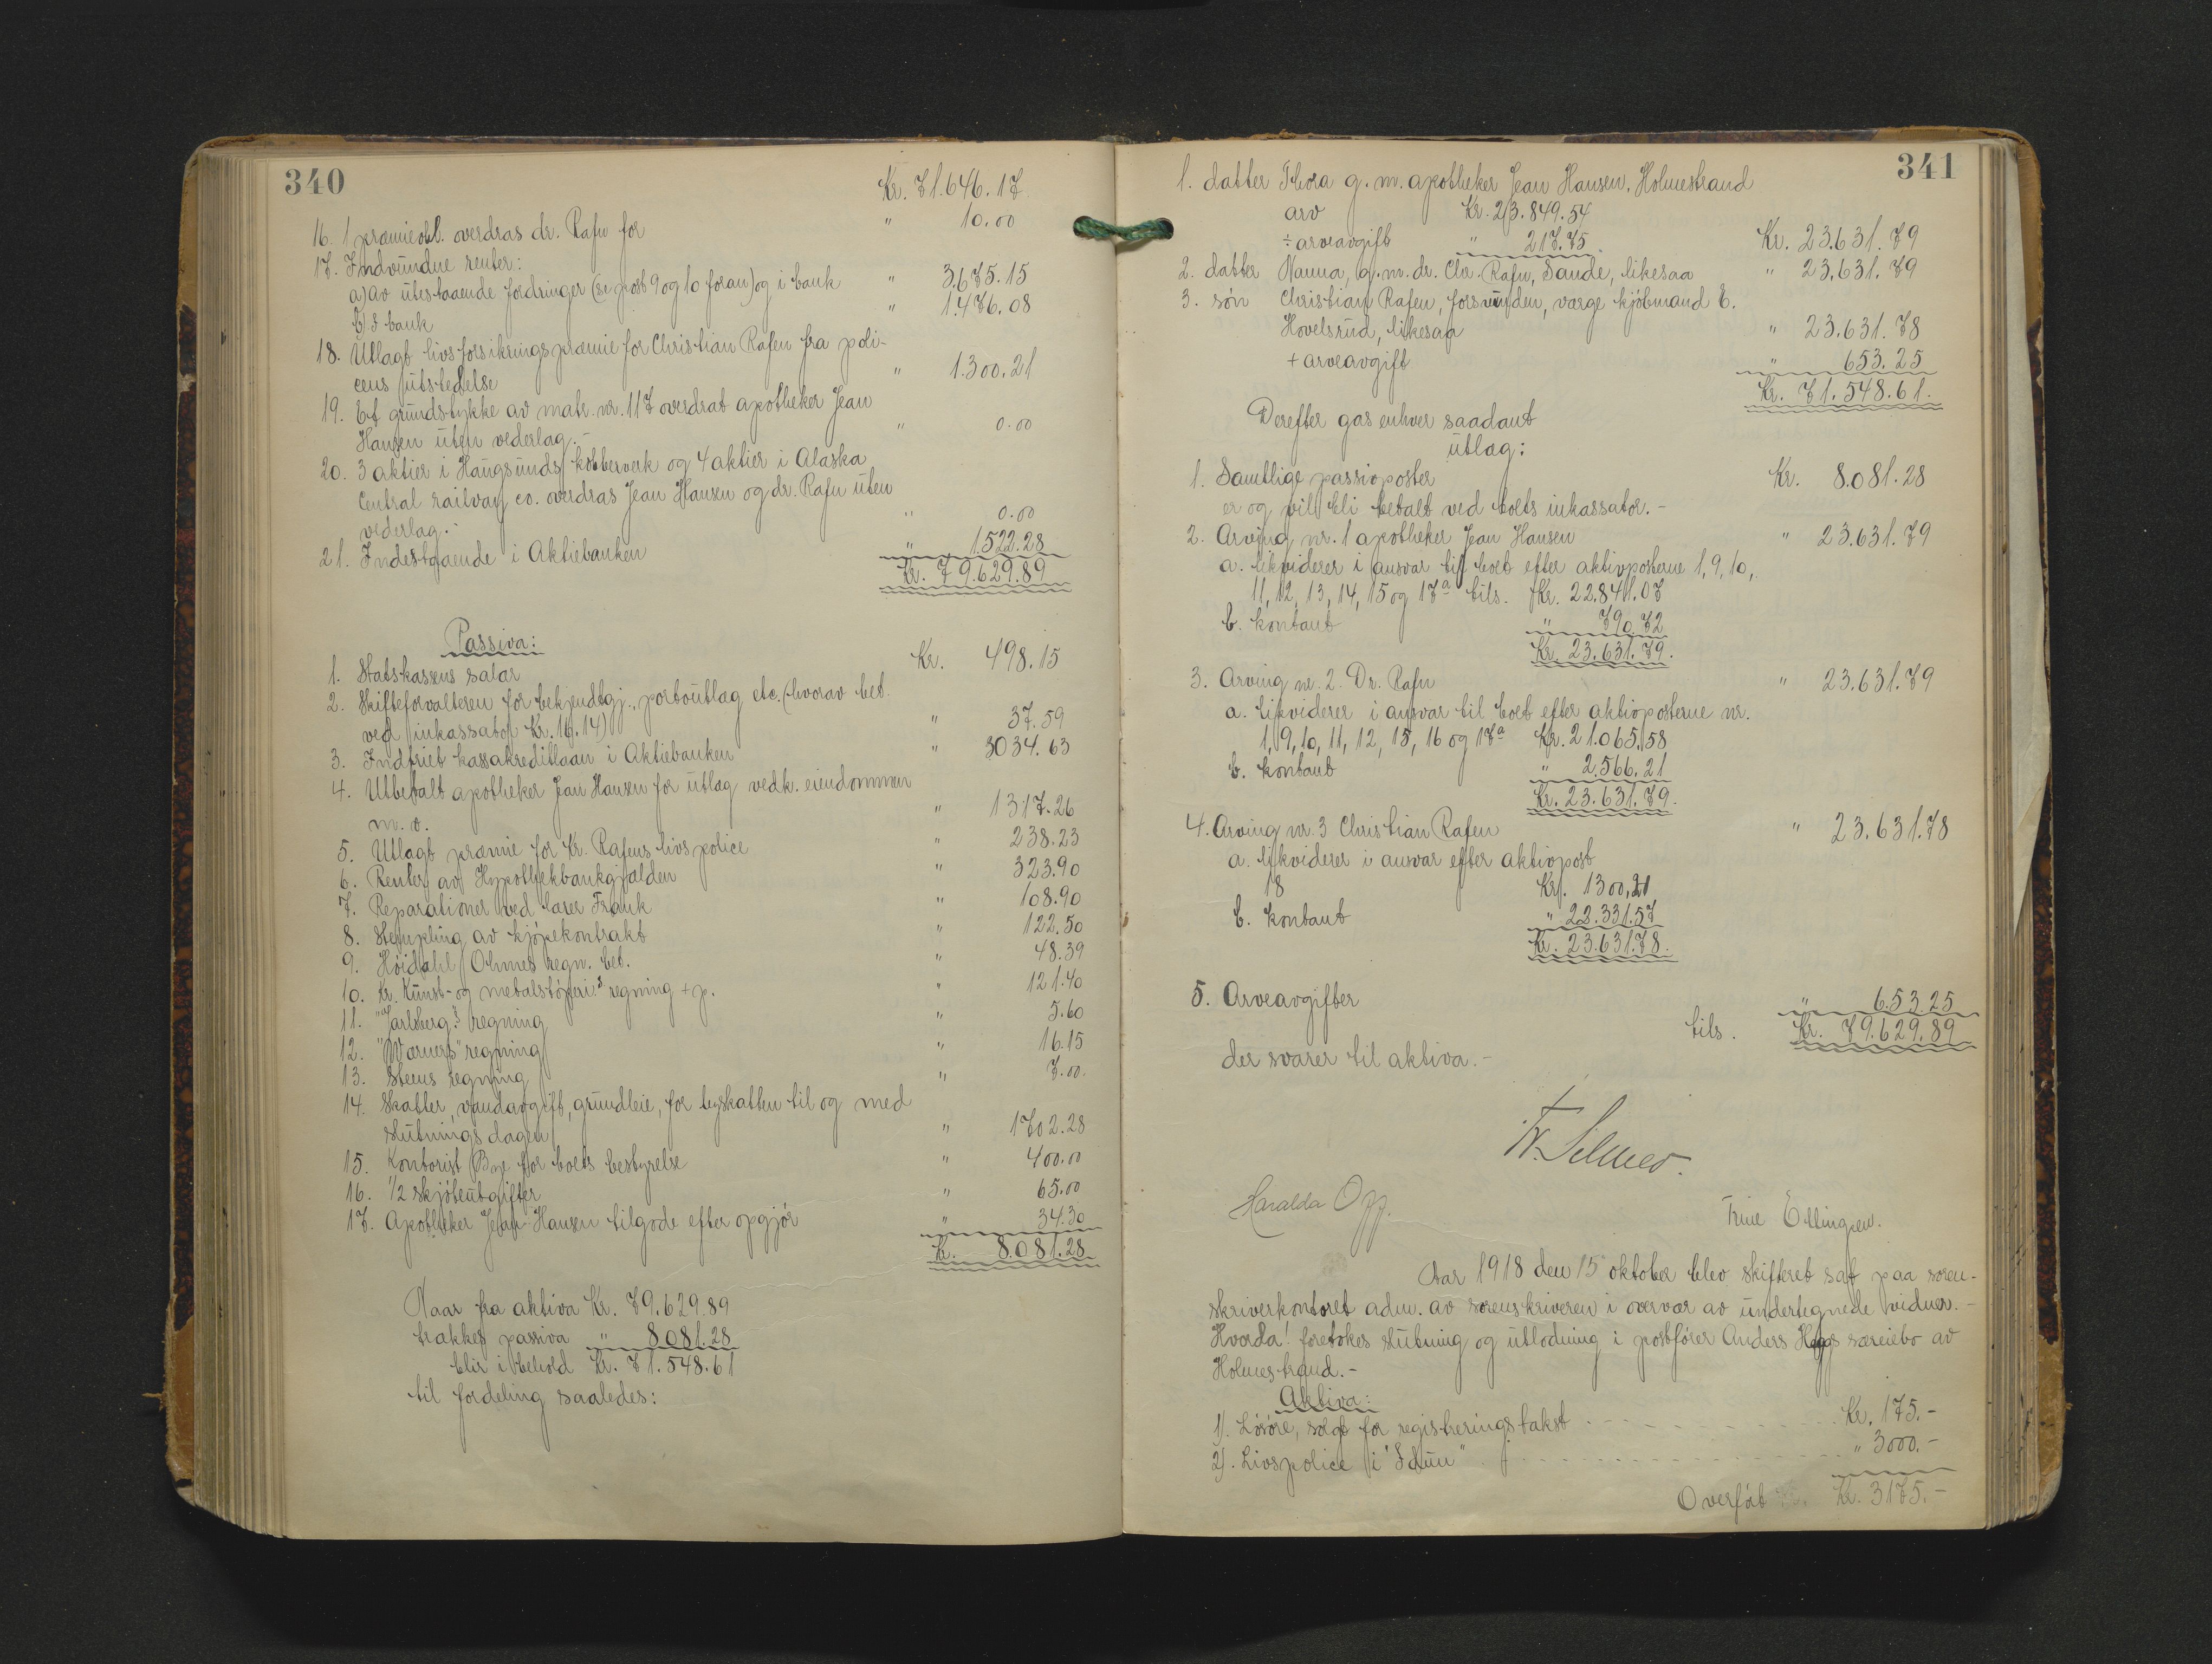 340
Kr. 71.646.17
16. 1 præmieobl. overdras dr. Rafn for " 10.00
17. Indvundne renter:
a) av utestaaende fordringer (se post 9 og 10 foran) og i bank " 3.675.15
b) I bank " 1.476.08
18. Utlagt livsforsikringspræmie for Christian Rafen fra poli-
cens utstedelse " 1.300.21
19. Et grundstykke av matr. nr. 117 overdrat apotheker Jean
Hansen uten vederlag.- " 0.00
20. 3 aktier i Haugsunds kobberverk og 4 aktier i Alaska
Central railvay co. overdras Jean Hansen og dr. Rafn uten
vederlag.- " 0.00
21. Indestaaende i Aktiebanken " 1.522.28
Kr. 79.629.89
Passiva:
1. Statskassens salær Kr. 498.15
2. Skifteforvalteren for bekjendtgj., portoutlag etc. (hvorav bet.
ved inkassator Kr. 16.14) " 37.59
3. Indfriet kassakreditlaan i Aktiebanken " 3034.63
4. Utbetalt apotheker Jean Hansen for utlag vedk. eiendommen
m. v. " 1317.26
5. Utlagt præmie for Kr. Rafens livspolice " 238.23
6. Renter av Hypothekbankgjælden " 323.90
7. Reparationer ved lærer Frank " 108.90
8. Stempling av kjøpekontrakt " 122.50
9. Høidahl Ohmes regn. bet. " 48.39
10. Kr. Kunst- og metalstøperi's regning + p. " 121.40
11. "Jarlsberg"s regning " 5.60
12. "Værnes" regning " 16.15
13. Steens regning " 7.00.
14. Skatter, vandavgift, grundleie, for byskatten til og med
slutningsdagen " 1702.28
15. Kontorist Boye for boets bestyrelse " 400.00
16. 1/2 skjøteutgifter " 65.00
17. Apotheker Jean Hansen tilgode efter opgjør " 34.30
Kr. 8.081.28
Naar fra aktiva Kr. 79.629.89
trækkes passiva " 8081.28
blir i behold Kr. 71.548.61
til fordeling saaledes:
341
1. datter Thora g. m. apotheker Jean Hansen, Holmestrand
arv Kr. 23.849.54
÷ arveavgift " 217.75 Kr. 23.631.79
2. datter Nanna, g. m. dr. Chr. Rafn, Sande, likesaa " 23.631.79
3. søn Christian Rafen, forsvunden, værge kjøbmand E.
Hovelsrud, likesaa " 23.631.78
+ arveavgift " 653.25
Kr. 71.548.61.
Derefter gas enhver saadant
utlæg:
1. Samtlige passivposter Kr. 8.081.28
er og vil bli betalt ved boets inkassator.-
2. Arving nr. 1 apotheker Jean Hansen " 23.631.79
a. likviderer i ansvar til boet efter aktivposterne 1, 9, 10,
11, 12, 13, 14, 15 og 17a tils. Kr. 22.841.07
b. kontant " 790.72
Kr. 23.631.79.
3. Arving nr. 2. Dr. Rafn " 23.631.79
a. likviderer i ansvar til boet efter aktivposterne nr.
1, 9, 10, 11, 12, 15, 16 og 17a Kr. 21.065.58
b. kontant " 2.566.21
Kr. 23.631.79.
4. Arving nr. 3 Christian Rafen " 23.631.78
a. likviderer i ansvar efter aktivpost
18 Kr. 1300,21
b. kontant " 22.331.57
Kr. 23.631.78.
5. Arveavgifter " 653.25
tils. Kr. 79.629.89
der svarer til aktiva.-
Haralda Opp.
Trine Ellingsen.
Aar 1918 den 15 oktober blev skifteret sat paa soren-
skriverkontoret adm. av sorenskriveren i overvær av undertegnede vidner.-
Hvorda! foretokes slutning og utlodning i postfører Anders Hoggs særeiebo av
Holmestrand.-
Aktiva:
1). Løsøre, solgt for registreringstakst Kr. 175.-
2). Livspolice i "Idun" " 3000.-
Overført Kr. 3175.-